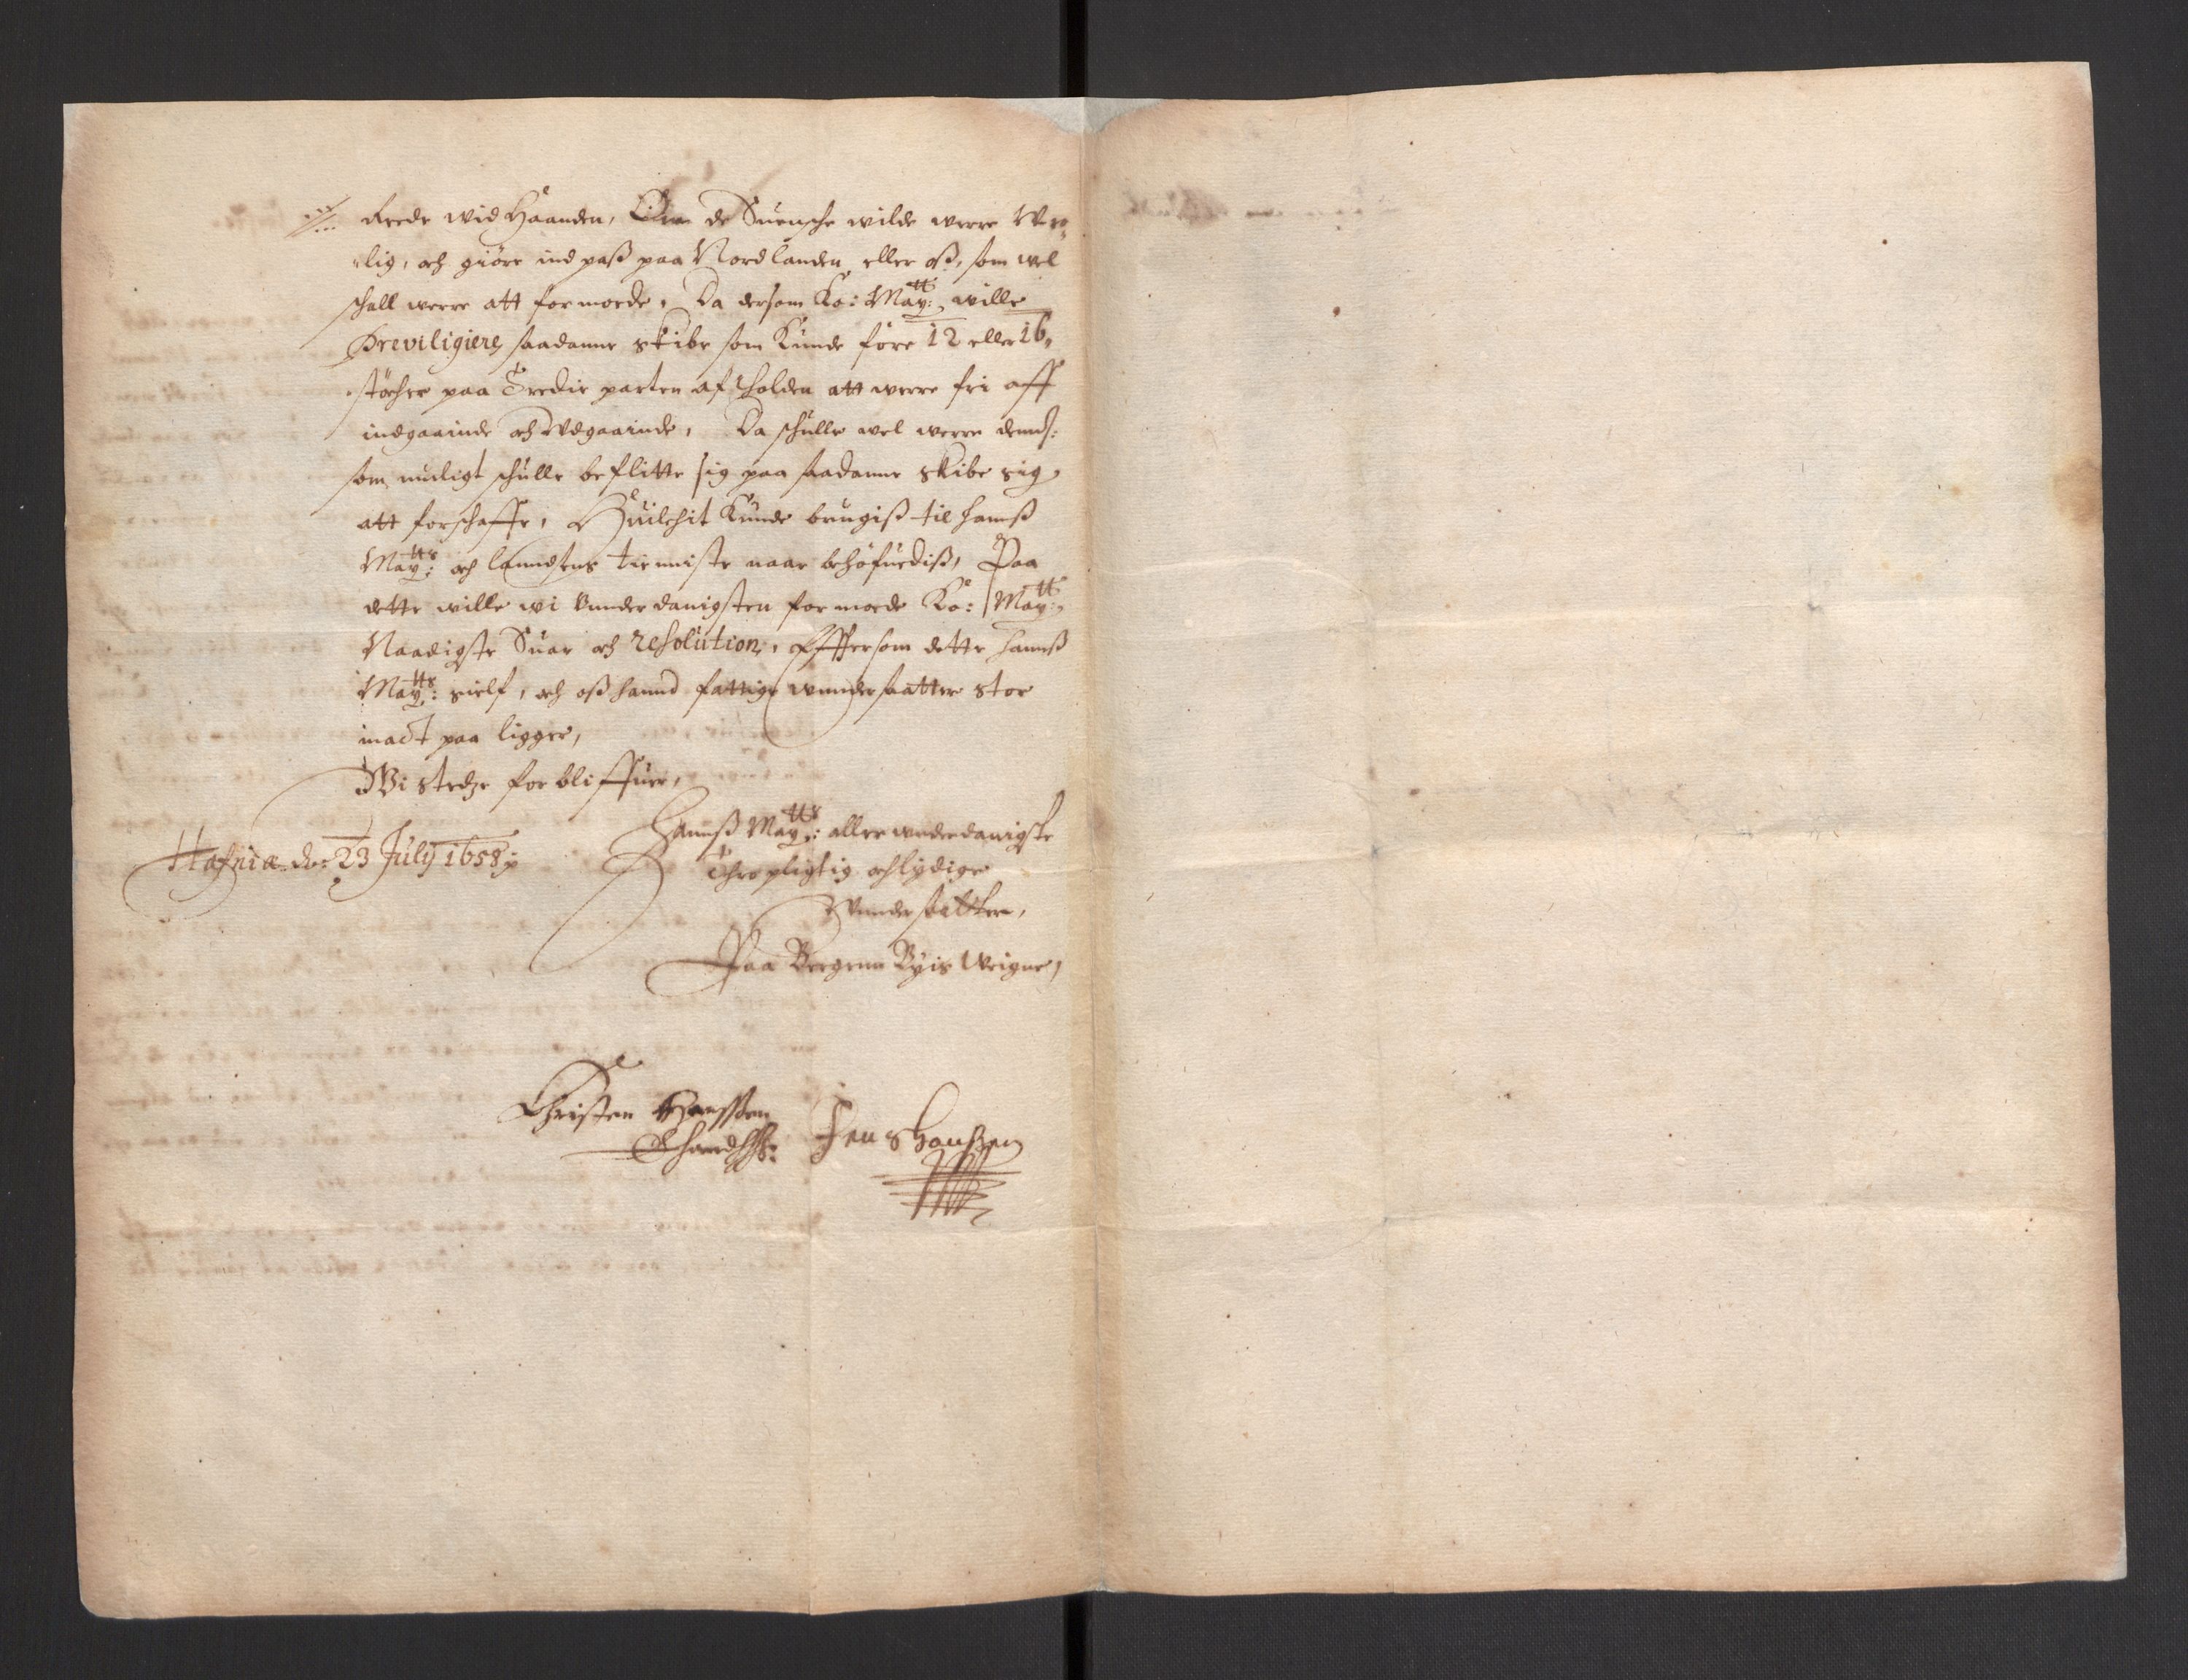 Rede wid Haanden, Om de Suensche wilde werre Wro-
lig, och giöre indpaß paa Nordlanden eller oß, som wel
schall werre att formode, Da dersom Ko: Maytt: wille
Previligiere saadanne skibe som Kunde före 12 eller 16
støcher paa Tredie parten af tholden att werre fri aff
indgaainde och Udgaainde, Da schulle wel werre dennd:
som muligt schulle beflitte sig paa saadanne skibe sig
att forschaffe, Huilchit Kunde brugiß til hanß
Maytts: och lanndsens tienniste naar behøfuediß, Paa
dette wille wi Vnderdanigsten formode Ko: Maytt:
Naadigste Suar och resolution, Effersom dette hanß
Maytts: sielf, och oß hannd fattige wnndersaatter stor
mact paa ligger,
Wi stedze forbliffuer,
Hanß Maytts: aller wnderdanigste
Hafniæ den 23 July 1658
Thropligtig och lydige
Wnndersaatter,
Paa Bergenn Byis Weigne,
Christen Hanssen
Jens Hanßen